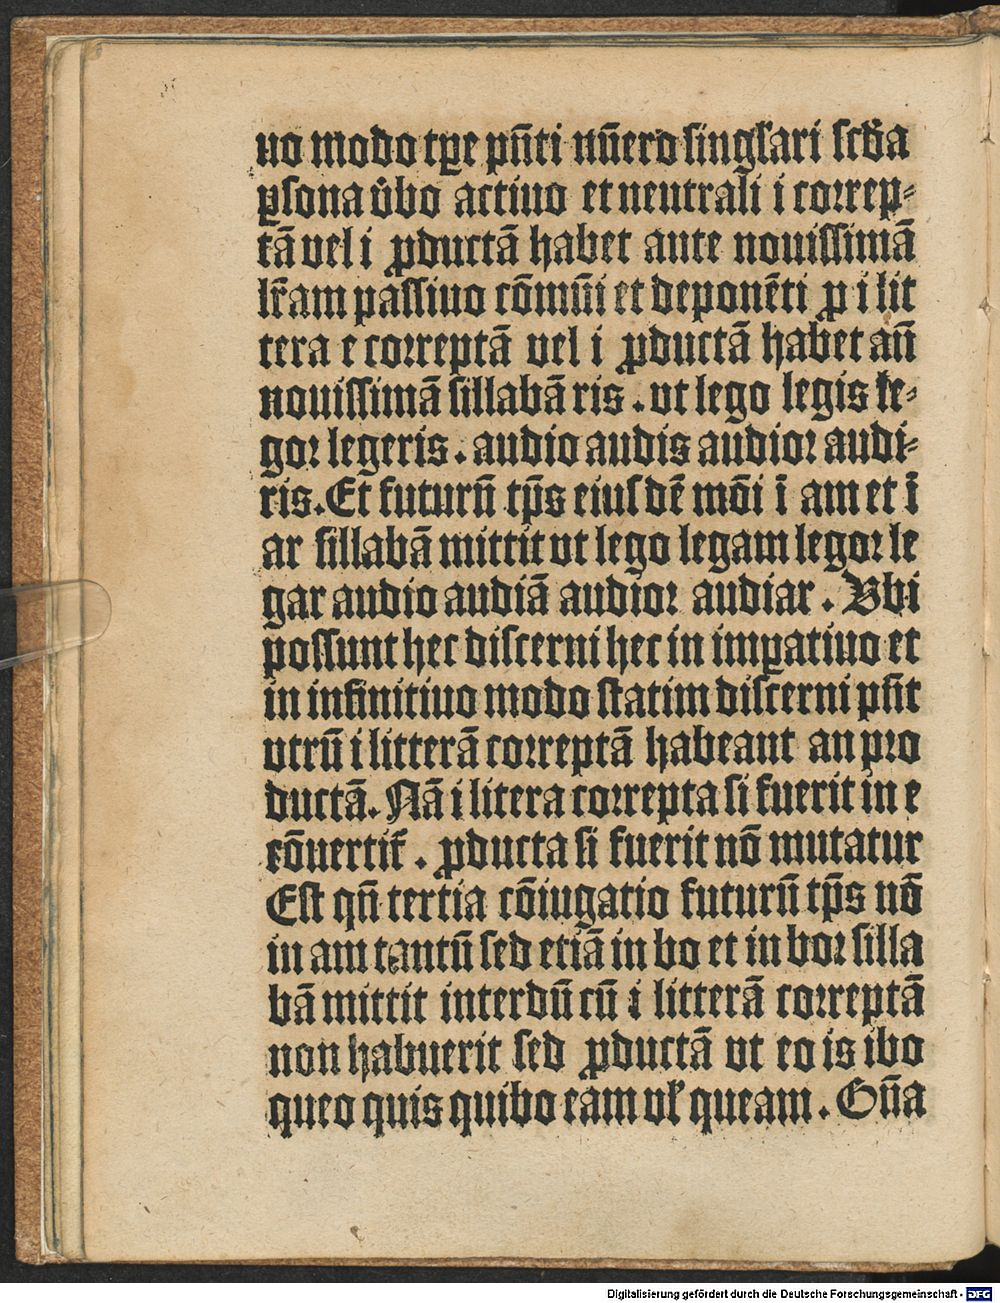 uo modo tꝑe pn̄ti nūero singl̕ari scd̕a
ꝑsona v̕bo actiuo et neutrali i correp⸗
tā vel i ꝓductā habet ante nouissimā
lr̄am passiuo cōmūi et deponēti ꝓ i lit
tera e correptā vel i ꝓductā habet an̄
nouissimā sillabā ris . vt lego legis le⸗
gor legeris . audio audis audior audi⸗
ris. Et futurū tp̄s eiusdē mōi ī am et ī
ar sillabā mittit vt lego legam legor le
gar audio audiā audior audiar . Vbi
possunt hec discerni hec in imꝑatiuo et
in infinitiuo modo statim discerni pn̄t
vtrū i litterā correptā habeant an pro
ductā. Nā i litera correpta si fuerit in e
cōuertit᷑ . ꝓducta si fuerit nō mutatur
Est qn̄ tertia cōiugatio futurū tp̄s nō
in am tantū sed etiā in bo et in bor silla
bā mittit interdū cū i litterā correptā
non habuerit sed ꝓductā vt eo is ibo
queo quis quibo eam vl̕ queam . Gn̄a
Digitalisierung gefördert durch die Deutsche Forschungsgemeinschaft - DFG